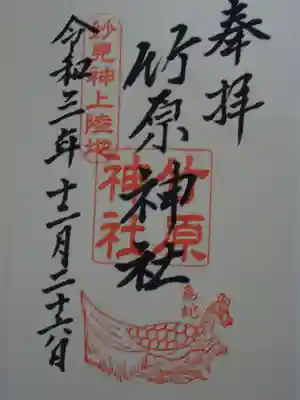 奉拝
竹原神社
妙見神上陸地
竹原神社
令和三年十二月二十六日
亀蛇